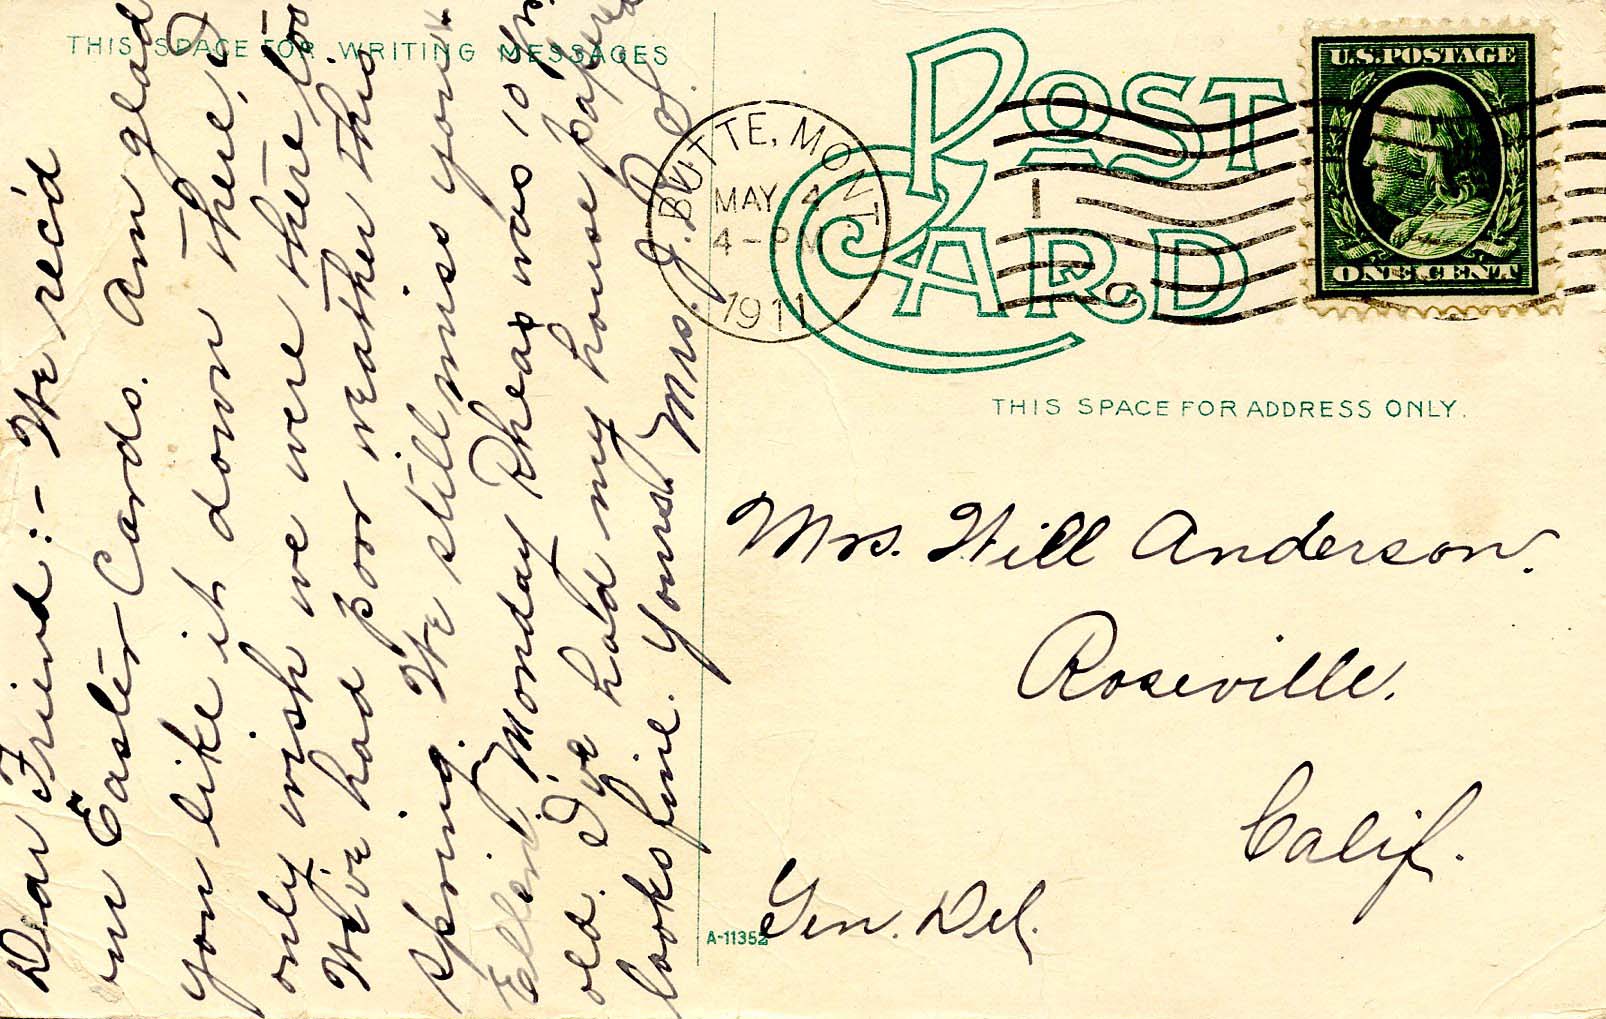 THIS SPACE FOR WRITING MESSAGES
Dear Friend:- We rec'd
our Easter Cards. Am glad
you like it down there, I
only wish we were there too.
We've had poor weather this
spring. We still miss you.
Ellen. Monday Rheas was 10 yrs.
old. I've had my house papered
looks fine. Yours Mrs. J.
POST CARD
BUTTE, MONT.
MAY 4
4-PM
1911
1
U.S. POSTAGE
ONE CENT
THIS SPACE FOR ADDRESS ONLY.
Mrs. Will Anderson.
Roseville.
Calif.
Gen. Del.
A-11352